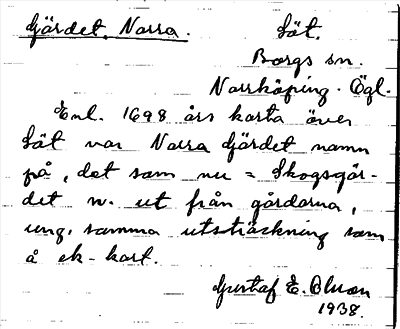 Gärdet, Norra.
Låt.
Borgs sn.
Norrköping. Ögl.
Enl. 1698 års karta över
Låt var Norra Gärdet namn
på, det som nu = Skogsgär-
det n. ut från gårdarna,
ung. samma utsträckning som
å ek-kart.
Gustaf E. Olsson
1938.